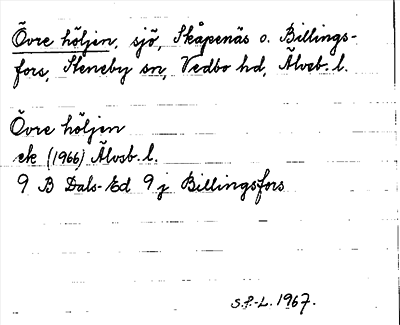 Övre höljen, sjö, Skåpenäs o. Billings-
fors, Steneby sn, Vedbo hd, Älvsb. l.
Övre höljen
ek (1966) Älvsb. l.
9 B Dals-Ed 9 j Billingsfors
S.F.-L. 1967.